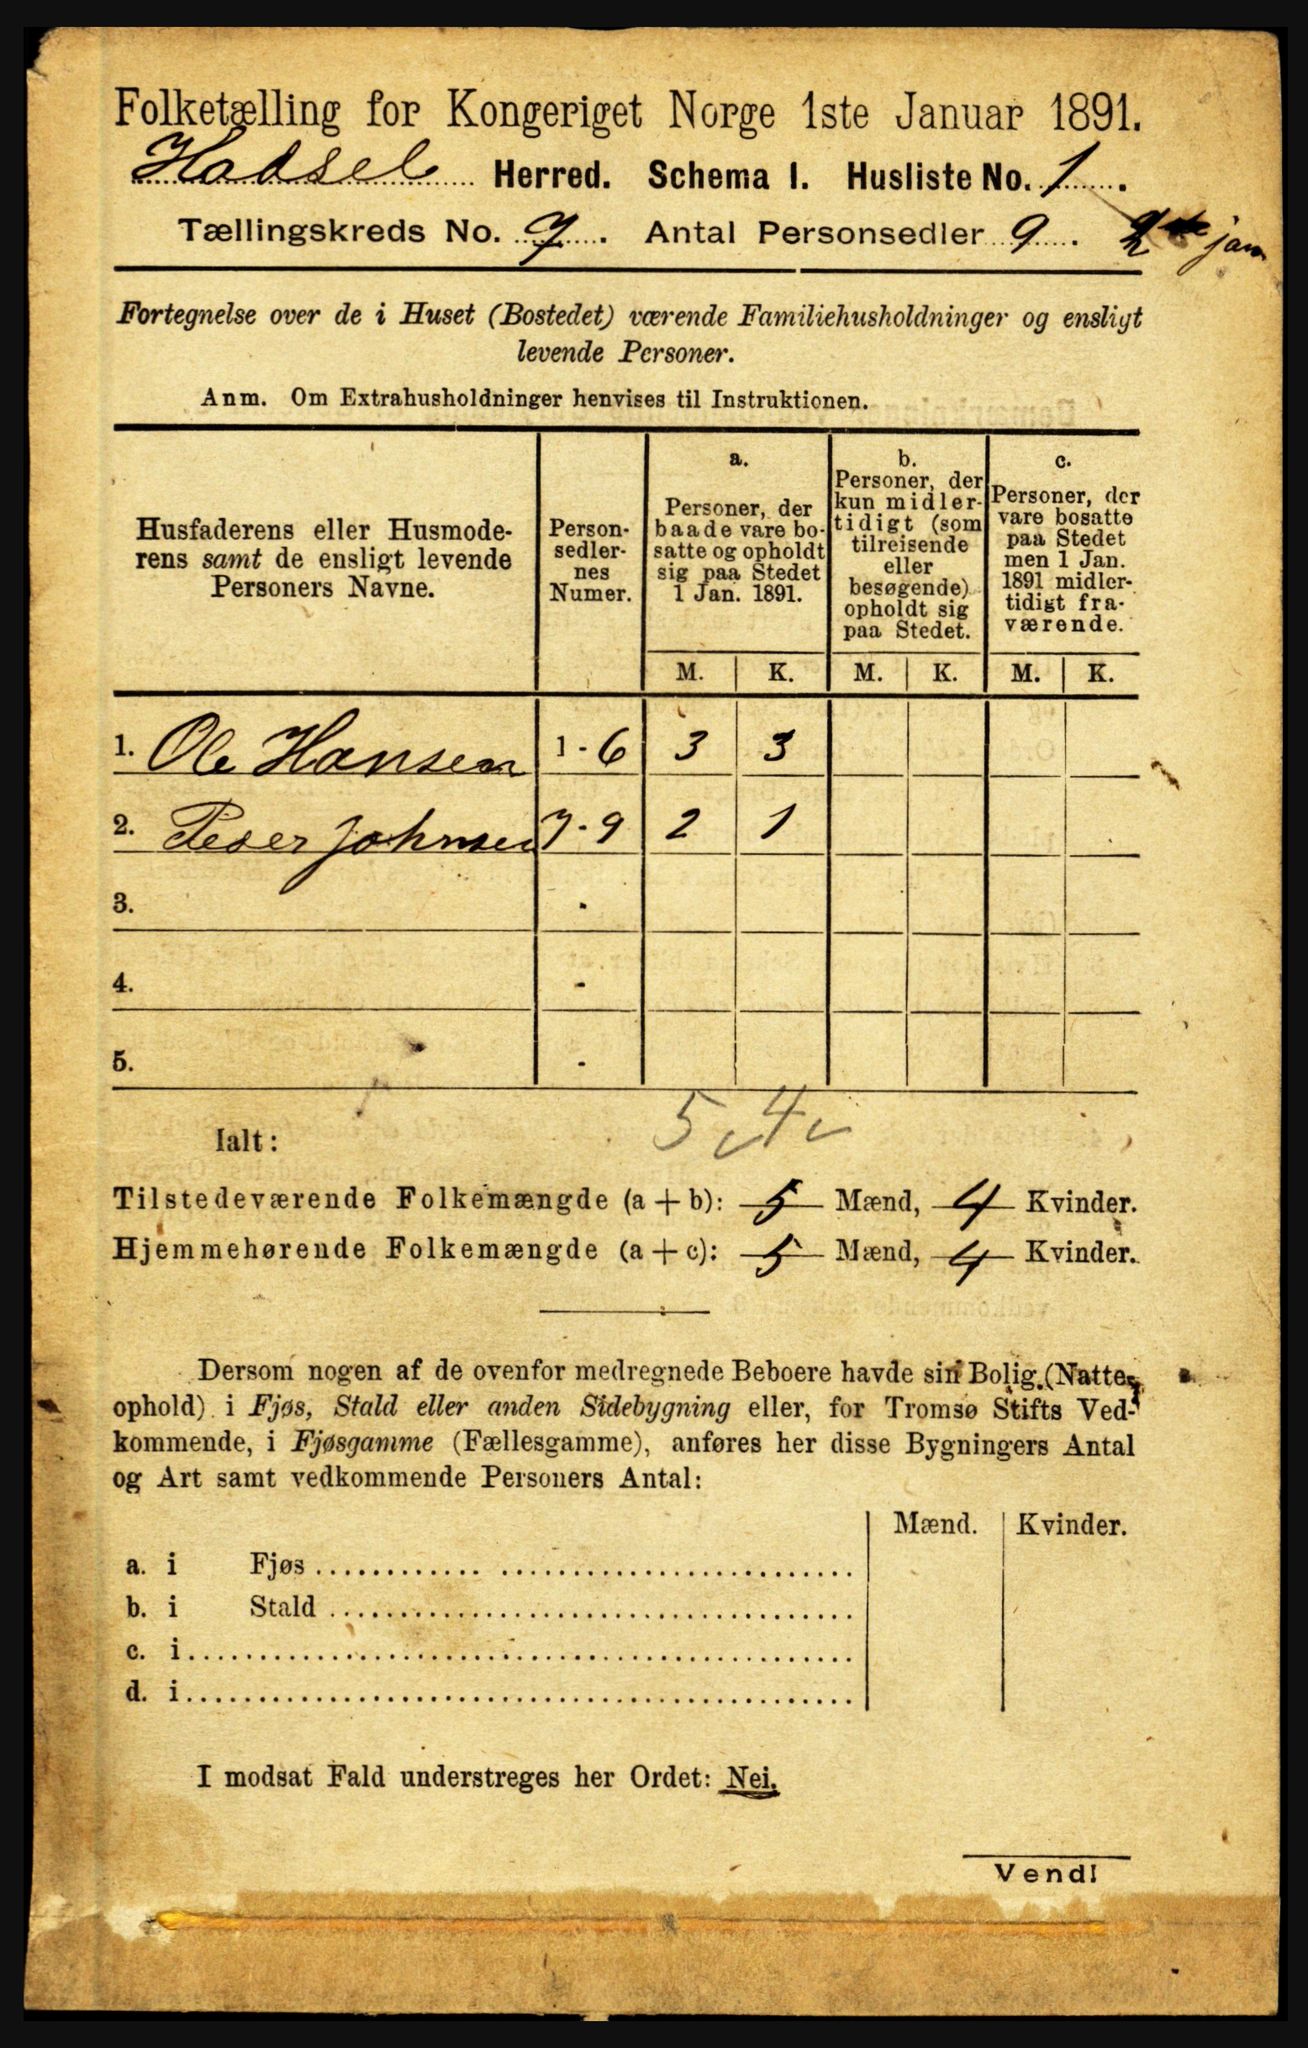 Folketælling for Kongeriget Norge 1ste Januar 1891.
Hadsel Herred. Schema I. Husliste No. 1.
Tællingskreds No. 7. Antal Personsedler 9. 2den jan
Fortegnelse over de i Huset (Bostedet) værende Familiehusholdninger og ensligt
levende Personer.
Anm. Om Extrahusholdninger henvises til Instruktionen.
Husfaderens eller Husmode-
rens samt de ensligt levende
Personers Navne.
Person-
sedler-
nes
Numer.
a.
Personer, der
baade vare bo-
satte og opholdt
sig paa Stedet
1 Jan. 1891.
b.
Personer, der
kun midler-
tidigt (som
tilreisende
eller
besøgende)
opholdt sig
paa Stedet.
c.
Personer, der
vare bosatte
paa Stedet
men 1 Jan.
1891 midler-
tidigt fra-
værende.
M. K. M. K. M. K.
1. Ole Hansen 1 - 6 3 3
2. Peder Johnsen 7 - 9 2 1
3. -
4. -
5. -
5 4
Ialt:
Tilstedeværende Folkemængde (a + b): 5 Mænd, 4 Kvinder.
Hjemmehørende Folkemængde (a + c): 5 Mænd, 4 Kvinder.
Dersom nogen af de ovenfor medregnede Beboere havde sin Bolig (Natte-
ophold) i Fjøs, Stald eller anden Sidebygning eller, for Tromsø Stifts Ved-
kommende, i Fjøsgamme (Fællesgamme), anføres her disse Bygningers Antal
og Art samt vedkommende Personers Antal:
Mænd. Kvinder.
a. i Fjøs
b. i Stald
c. i
d. i
I modsat Fald understreges her Ordet: Nei.
Vend!